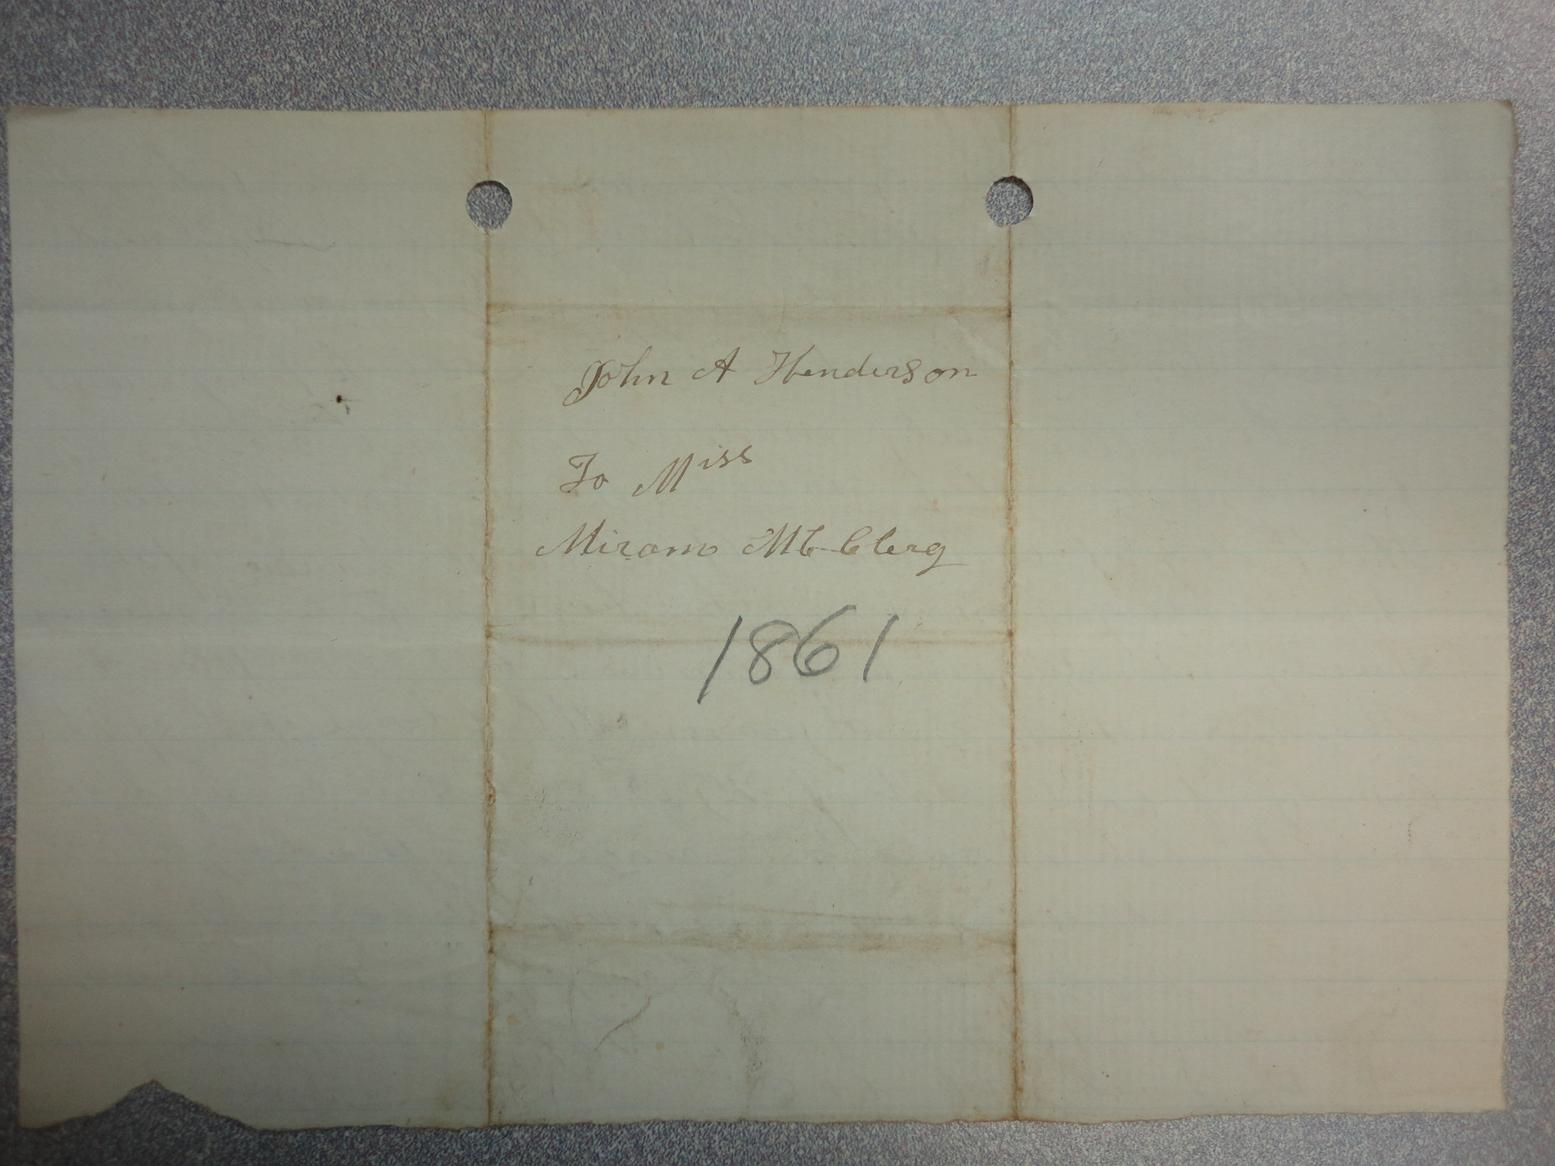 John A Henderson
To Miss
Miram McClerg
1861